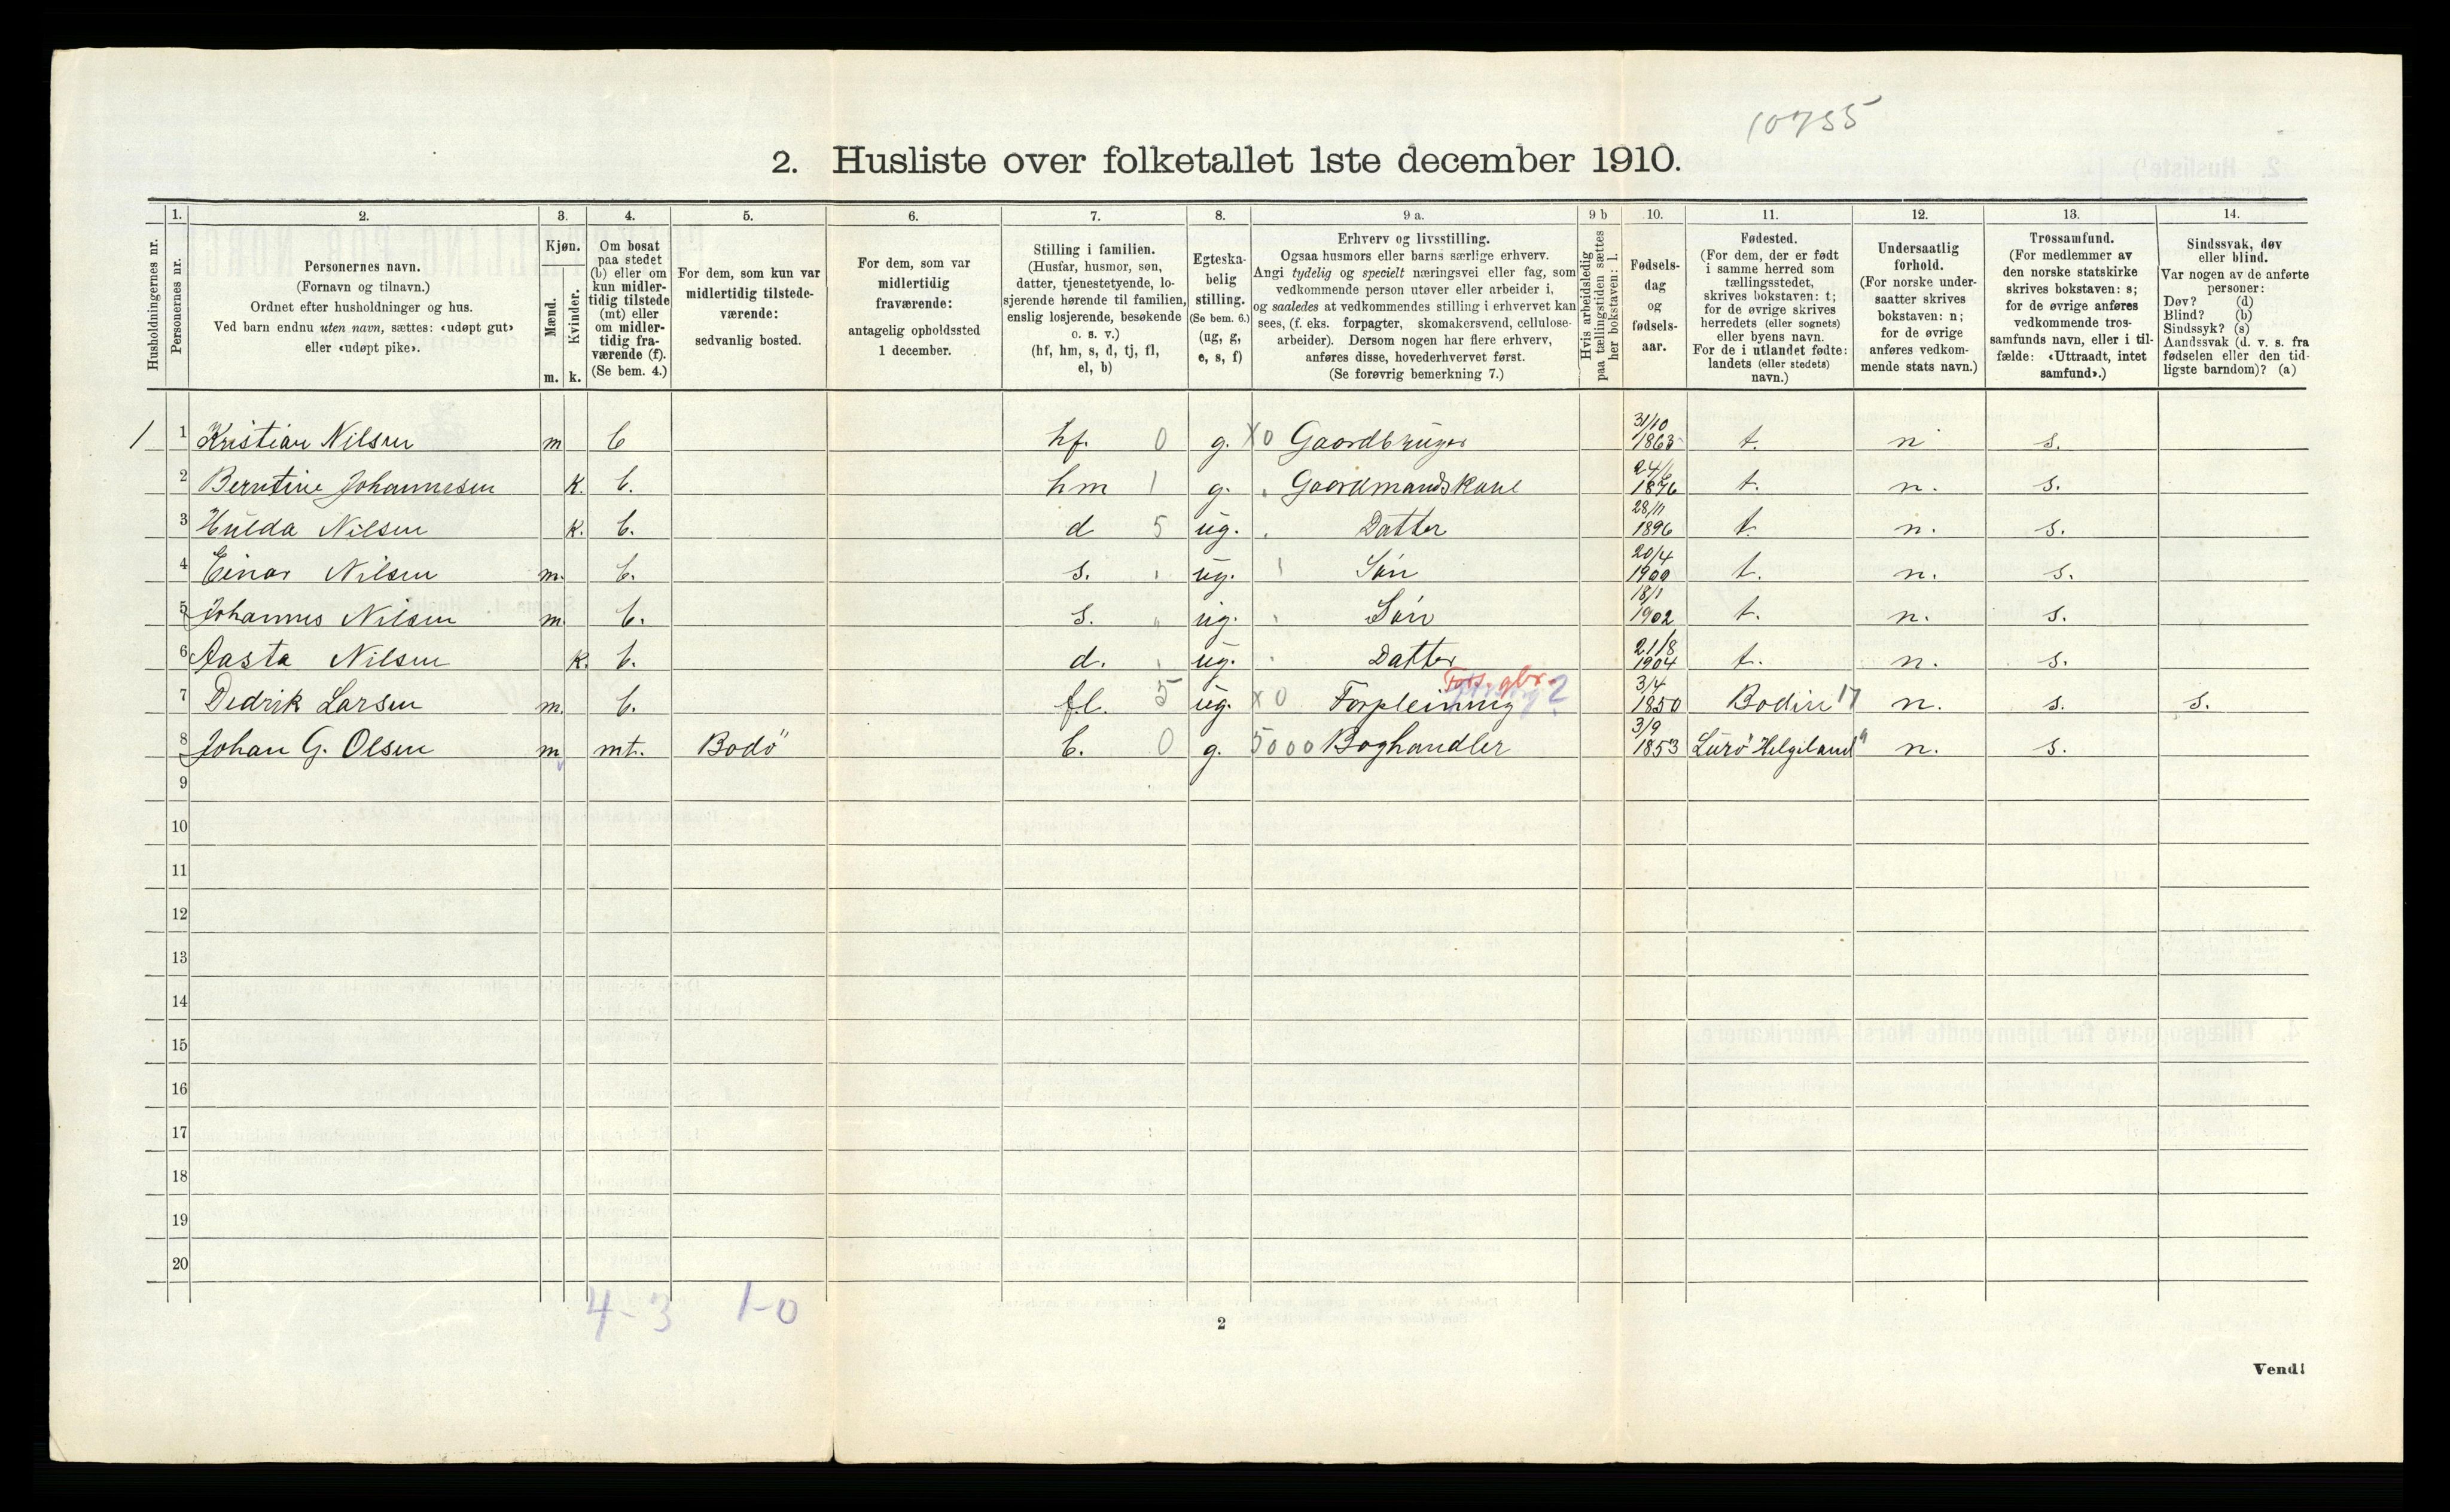 10755
2. Husliste over folketallet 1ste december 1910.
Husholdningernes nr.
1. Personernes nr.
2. Personernes navn. (Fornavn og tilnavn.) Ordnet efter husholdninger og hus. Ved barn endnu uten navn, sættes: «udøpt gut» eller «udøpt pike».
3. Kjøn. Mænd. m. Kvinder. k.
4. Om bosat paa stedet (b) eller om kun midlertidig tilstede (mt) eller om midlertidig fraværende (f). (Se bem. 4.)
5. For dem, som kun var midlertidig tilstedeværende: sedvanlig bosted.
6. For dem, som var midlertidig fraværende: antagelig opholdssted 1 december.
7. Stilling i familien. (Husfar, husmor, søn, datter, tjenestetyende, losjerende hørende til familien, enslig losjerende, besøkende o. s. v.) (hf, hm, s, d, tj, fl, el, b)
8. Egteskabelig stilling. (Se bem. 6.) (ug, g, e, s, f)
9 a. Erhverv og livsstilling. Ogsaa husmors eller barns særlige erhverv. Angi tydelig og specielt næringsvei eller fag, som vedkommende person utøver eller arbeider i, og saaledes at vedkommendes stilling i erhvervet kan sees, (f. eks. forpagter, skomakersvend, cellulosearbeider). Dersom nogen har flere erhverv, anføres disse, hovederhvervet først. (Se forøvrig bemerkning 7.)
9 b Hvis arbeidsledig paa tællingstiden sættes her bokstaven: l.
10. Fødselsdag og fødselsaar.
11. Fødested. (For dem, der er født i samme herred som tællingsstedet, skrives bokstaven: t; for de øvrige skrives herredets (eller sognets) eller byens navn. For de i utlandet fødte: landets (eller stedets) navn.)
12. Undersaatlig forhold. (For norske undersaatter skrives bokstaven: n; for de øvrige anføres vedkommende stats navn.)
13. Trossamfund. (For medlemmer av den norske statskirke skrives bokstaven: s; for de øvrige anføres vedkommende trossamfunds navn, eller i tilfælde: «Uttraadt, intet samfund».)
14. Sindssvak, døv eller blind. Var nogen av de anførte personer: Døv? (d) Blind? (b) Sindssyk? (s) Aandssvak (d. v. s. fra fødselen eller den tidligste barndom)? (a)
1 1 Kristian Nilsen m b hf. 0 g. X0 Gaardbruger 31/10 1863 t. n s.
2 Berntine Johannesen k. b. hm 1 g. Gaardmandskone 24/6 1876 t. n. s.
3 Hulda Nilsen k. b. d 5 ug. Datter 28/11 1896 t. n. s.
4 Einar Nilsen m. b. s. ug. Søn 20/4 1900 t. n. s.
5 Johannes Nilsen m. b. s. ug. Søn 18/1 1902 t. n. s.
6 Aasta Nilsen k. b. d. ug. Datter 21/8 1904 t. n. s.
7 Dedrik Larsen m. b. fl. 5 ug. X0 Forpleining ? Fors. gbr. 3/4 1850 Bodin 17 n. s. s.
8 Johan G. Olsen m mt. Bodö b. 0 g. 5000 Boghandler 3/9 1853 Lurö Helgeland n. s.
9
10
11
12
13
14
15
16
17
18
19
20
4-3 1-0
2
Vend!